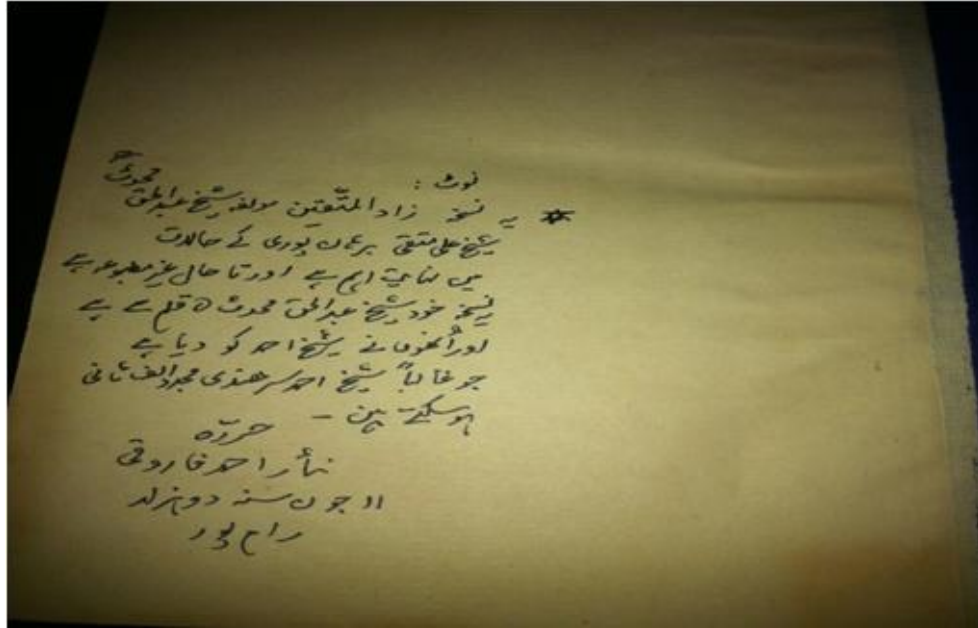 نوٹ :
* یہ نسخہ زاد المتّقین مولفہ شیخ عبدالحق محدثؒ
شیخ علی متقی برہان پوری کے حالات
میں نہایت اہم ہے اور تا حال غیر مطبوعہ ہے
یہ نسخہ خود شیخ عبدالحق محدث کے قلم سے ہے
اور اُنھوں نے شیخ احمد کو دیا ہے
جو غالباً شیخ احمد سرھندی مجدد الف ثانی
ہو سکتے ہیں ۔
حررّہ
نثار احمد فاروقی
۱۱ جون سنہ دو ہزار
رام پور